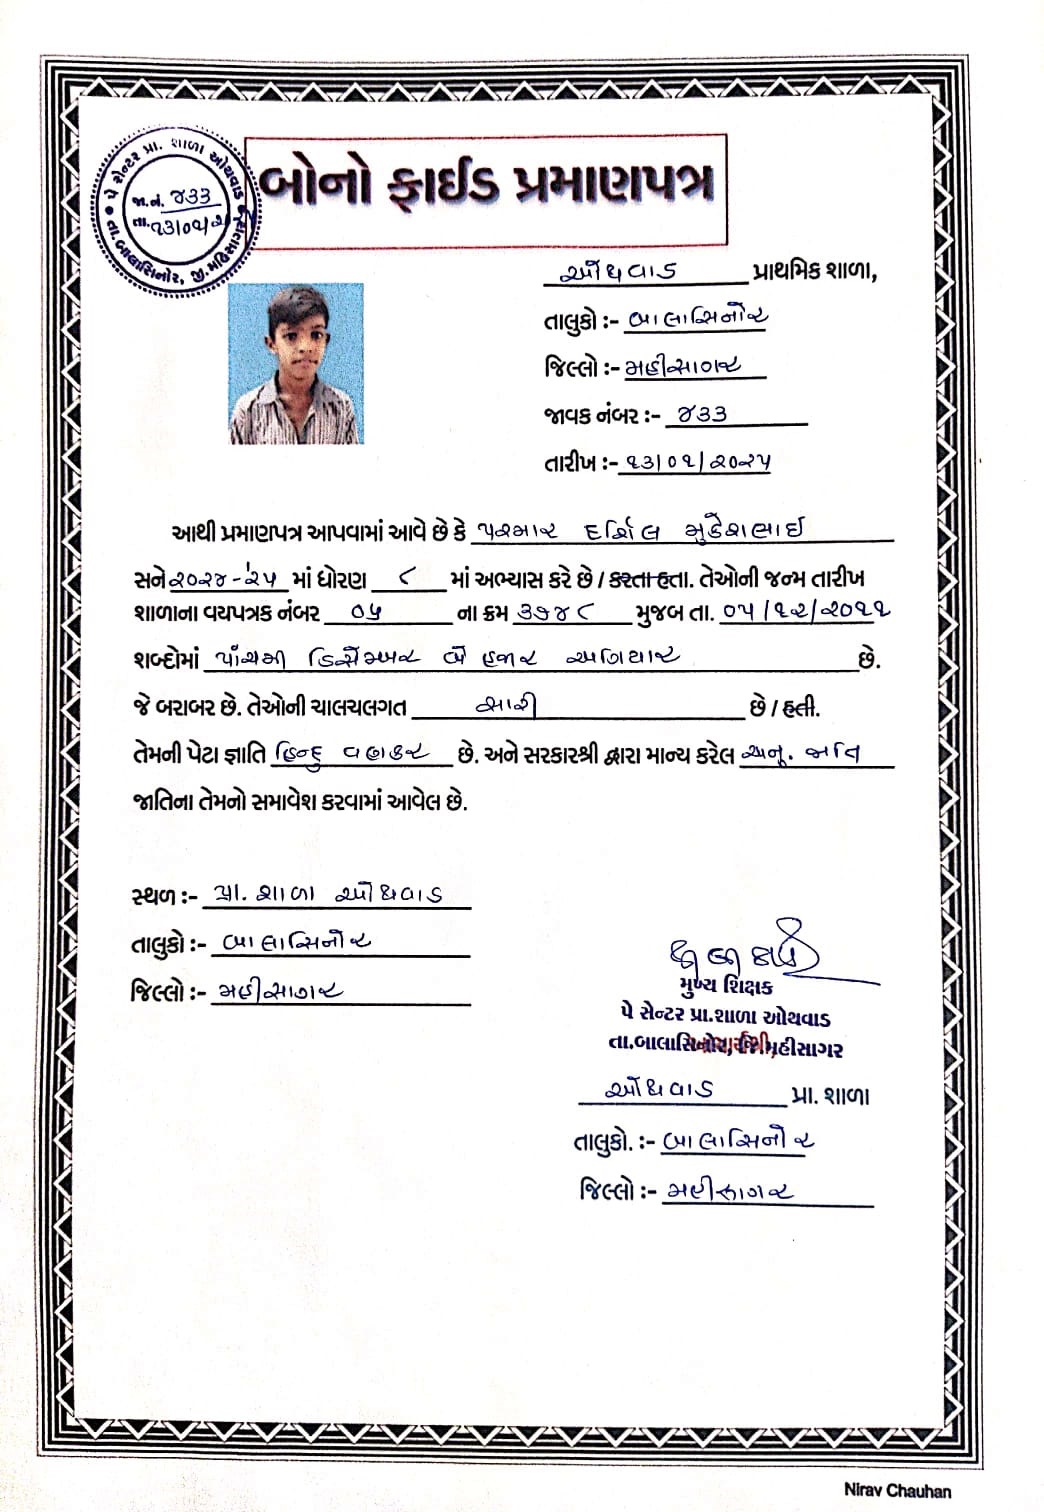 પે સેન્ટર પ્રા. શાળા ઓથવાડ
જા.નં. ૪૩૩
તા. ૧૩/૦૧/૨
તા.બાલાસિનોર, જી.મહિસાગર
બોનો ફાઈડ પ્રમાણપત્ર
ઓથવાડ પ્રાથમિક શાળા,
તાલુકો :- બાલાસિનોર
જિલ્લો :- મહીસાગર
જાવક નંબર :- ૪૩૩
તારીખ :- ૧૩/૦૧/૨૦૨૫
આથી પ્રમાણપત્ર આપવામાં આવે છે કે પરમાર દર્શિલ મુકેશભાઈ
સને ૨૦૨૪-'૨૫ માં ધોરણ ૮ માં અભ્યાસ કરે છે / કરતા હતા. તેઓની જન્મ તારીખ
શાળાના વયપત્રક નંબર ૦૫ ના ક્રમ ૩૭૪૮ મુજબ તા. ૦૫/૧૨/૨૦૧૧
શબ્દોમાં પાંચમી ડિસેમ્બર બે હજાર અગિયાર છે.
જે બરાબર છે. તેઓની ચાલચલગત સારી છે / હતી.
તેમની પેટા જ્ઞાતિ હિન્દુ વણકર છે. અને સરકારશ્રી દ્વારા માન્ય કરેલ અનુ. જાતિ
જાતિના તેમનો સમાવેશ કરવામાં આવેલ છે.
સ્થળ :- પ્રા. શાળા ઓથવાડ
તાલુકો :- બાલાસિનોર
જિલ્લો :- મહીસાગર
મુખ્ય શિક્ષક
પે સેન્ટર પ્રા.શાળા ઓથવાડ
તા.બાલાસિનોર, જિ.મહીસાગર
ઓથવાડ પ્રા. શાળા
તાલુકો. :- બાલાસિનોર
જિલ્લો :- મહીસાગર
Nirav Chauhan